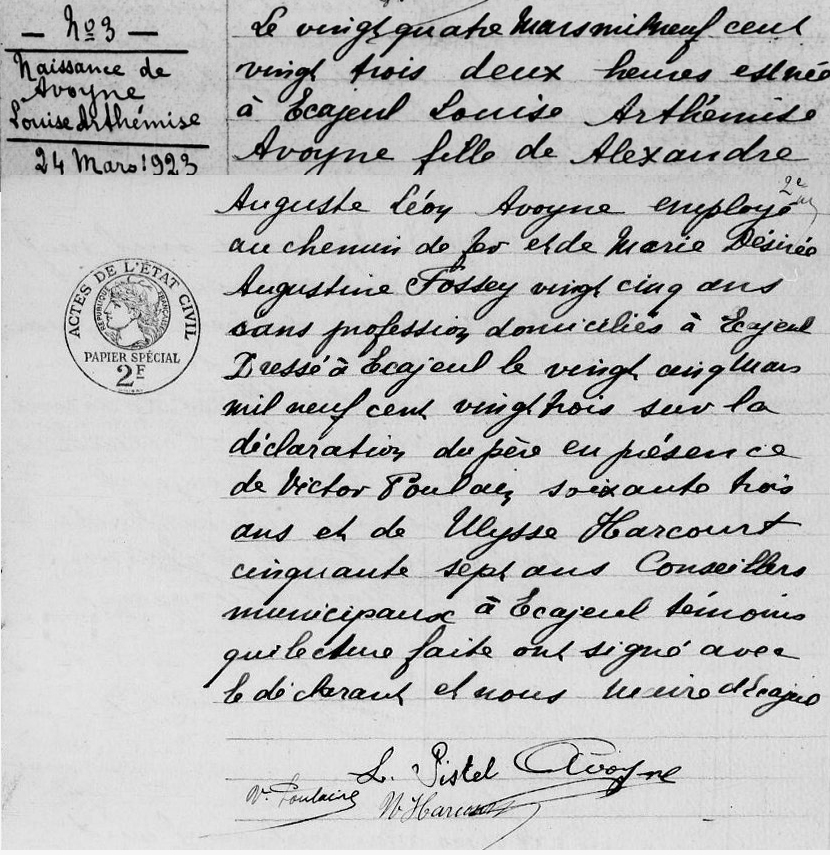 — No 3 —
Naissance de
Avoyne
Louise Arthémise
24 Mars 1923
Le vingt quatre Mars mil neuf cent
vingt trois deux heures est née
à Ecajeul Louise Arthémise
Avoyne fille de Alexandre
Auguste Léon Avoyne employé
au chemin de fer et de Marie Désirée
Augustine Fossey vingt cinq ans
sans profession domiciliés à Ecajeul
Dressé à Ecajeul le vingt cinq Mars
mil neuf cent vingt trois sur la
déclaration du père en présence
de Victor Poulain soixante trois
ans et de Ulysse Harcourt
cinquante sept ans Conseillers
municipaux à Ecajeul témoins
qui lecture faite ont signé avec
le déclarant et nous Maire d'Ecajeul
L. Pistel Avoyne
V. Poulain Harcourt
ACTES DE L'ÉTAT CIVIL
RÉPUBLIQUE FRANÇAISE
PAPIER SPÉCIAL
2F